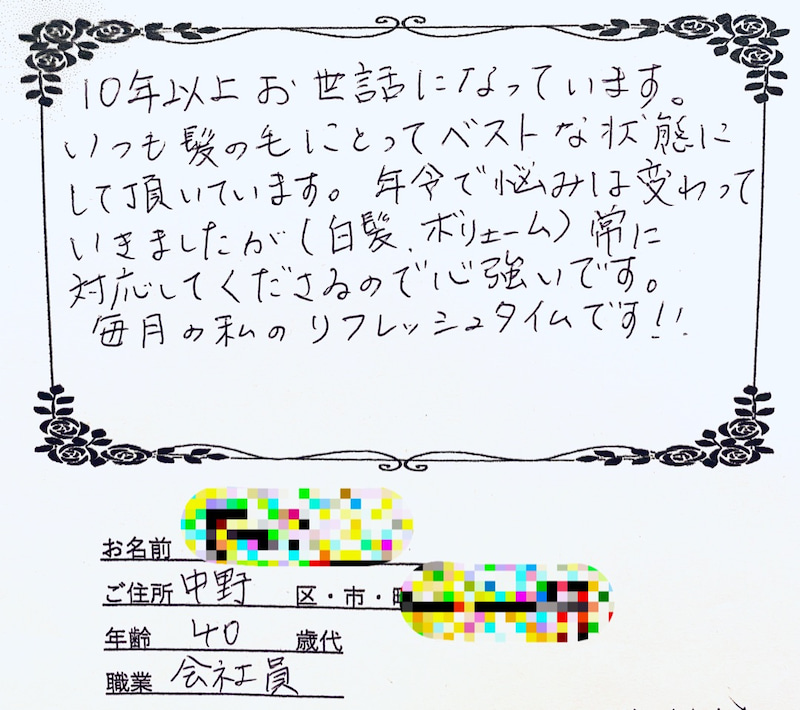 10年以上お世話になっています。
いつも髪の毛にとってベストな状態に
して頂いています。年令で悩みは変わって
いきましたが(白髪、ボリューム)常に
対応してくださるので心強いです。
毎月の私のリフレッシュタイムです!!
お名前
ご住所 中野 区・市・町
年齢 40 歳代
職業 会社員